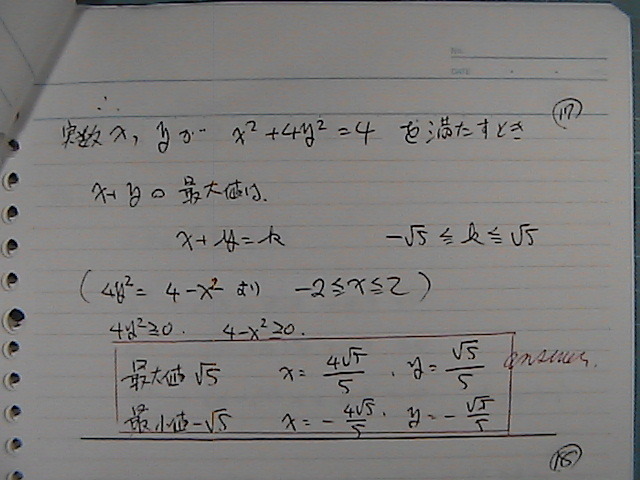 NO.
DATE
∴
(117)
実数 x, y が x² + 4y² = 4 を満たすとき
x+yの最大値は、
x + y = k   -√5 ≦ k ≦ √5
( 4y² = 4 - x² より -2 ≦ x ≦ 2 )
4y² ≧ 0. 4 - x² ≧ 0.
最大値 √5   x = 4√5/5 , y = √5/5 answer.
最小値 -√5   x = -4√5/5, y = -√5/5